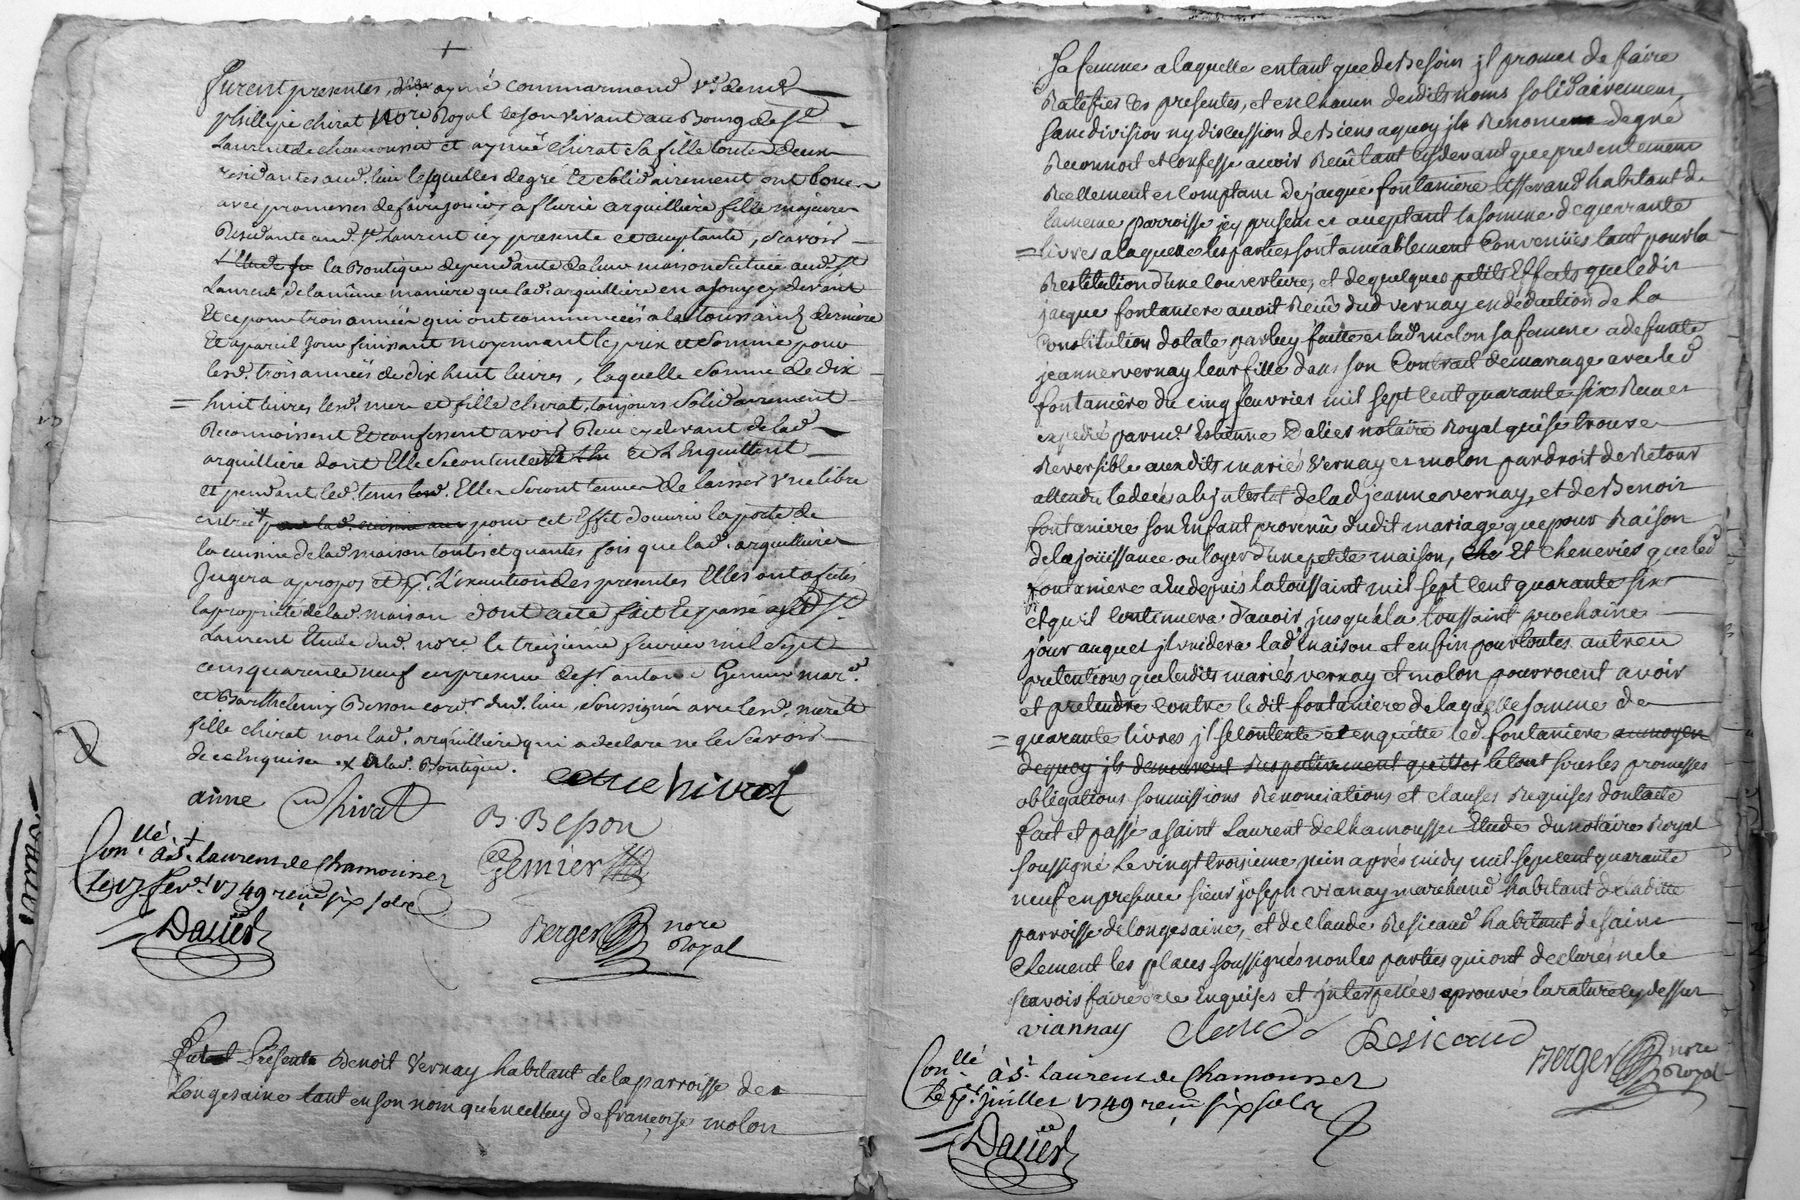 +
furent presentes, aymé commarmond v.e de me
phillipe chirat nore Royal de son vivant au Bourg de st
Laurent de chamousset et aymé chirat sa fille toutes deux
residantes aud. lieu lesquelles de gré et solidairement ont loué
avec promesses de faire jouir, a fleurie arquilliere fille majeure
Residante aud. st Laurent icy presente et acceptante, scavoir
la Boutique dependante de leur maison scituée aud. st
Laurent, de la même maniere que lad. arquilliere en a jouy cy devant
Et ce pour trois années qui ont commencées a la toussaint derniere
Et a pareil jour finissant moyennant le prix et somme pour
lesd. trois années de dix huit livres, laquelle somme de dix
= huit livres lesd. mere et fille chirat, toujours solidairement
Reconnoissent Et confessent avoir Receu cy devant de lad.
arquilliere dont Elle se contentent et L'Enquittent
et pendant led. tems Elles seront tenues de laisser une libre
entrée + pour cet Effet d'ouvrir la porte de
la cuisine de lad. maison toutes et quantes fois que lad. arquilliere
Jugera a propos et pr. L'execution des presentes Elles ont affecté
la proprieté de lad. maison dont acte fait et passé aud. st
Laurent Etude dud. nore. le treizieme fevrier mil sept
cens quarente neuf en presence de sr antoine Gemier mar.d
et Barthelemy Besson cord.r dud. lieu, soussignés avec lesd. mere et
fille chirat non lad. arquilliere qui a declaré ne le scavoir
de ce Enquise x a lad. Boutique.
anne chirat
B. Besson
Gemier
Con.llé à St. Laurent de Chamousset
le 17 fevr. 1749 reçeu six sols
Dalier
Berger nore
Royal
furent Présents Benoit Vernay habitant de la parroisse de
Longesaine tant en son nom qu'en celluy de françoise molon
sa femme a laquelle en tant que de Besoin jl promet de faire
Ratefier les presentes, et en chacun desdits noms solidairement
sans division ny discussion de Biens a quoy jls Renoncent de gré
Reconnoit et Confesse avoir Receû tant cy devant que presentement
Reellement et Comptant de jacque fontaniere tisserand habitant de
la meme parroisse jcy present et acceptant la somme de quarante
= livres a laquelle les parties sont amiablement Convenües tant pour la
Restitution d'une Couverture, et de quelques petits Effects que ledit
jacque fontaniere avoit Receû dud vernay en déduction de la
Constitution dotale par luy faitte et lad molon sa femme a defunte
jeanne vernay leur fille dans son Contrat de mariage avec led
fontaniere du cinq feuvrier mil sept cent quarante six Receu et
expedié par me. Estienne Dalier notaire Royal qui se trouve
Reversible auxdits mariés Vernay et molon par droit de Retour
attendu le decés ab jntestat de lad jeanne vernay, et de Benoit
fontaniere son Enfant provenû dudit mariage que pour Raison
de la joüissance ou loyer d'une petite maison, Et Cheneviere que led
fontaniere a eu depuis la toussaint mil sept cent quarante six
et qu'il Continuera d'avoir jusqu'a la toussaint prochaine
jour auquel jl vuidera lad maison et enfin pour toutes autres
pretentions que lesdits mariés vernay et molon pourroient avoir
et pretendre contre le dit fontaniere de laquelle somme de
= quarante livres jl se contente et enquitte led fontaniere au moyen
de quoy jls demeurent Respectivement quittes le tout sous les promesses
obligations soumissions Renonciations et clauses Requises dont acte
fait et passé a saint Laurent de Chamousset Etude du notaire Royal
soussigné le vingt troisieme juin aprés midy mil sept cent quarante
neuf en presence sieur joseph vianay marchand habitant de laditte
parroisse de longesaine, et de Claude Resicaud habitant de saint
Clement les places soussignés non les parties qui ont declarés ne le
scavoir faire de ce Enquises et jnterpellées aprouvé la rature cy dessus
viannay Claude Resicaud
Berger nore
Royal
Con.llé à St. Laurent de Chamousset
Le 7e. juillet 1749 reçeu six sols
Dalier